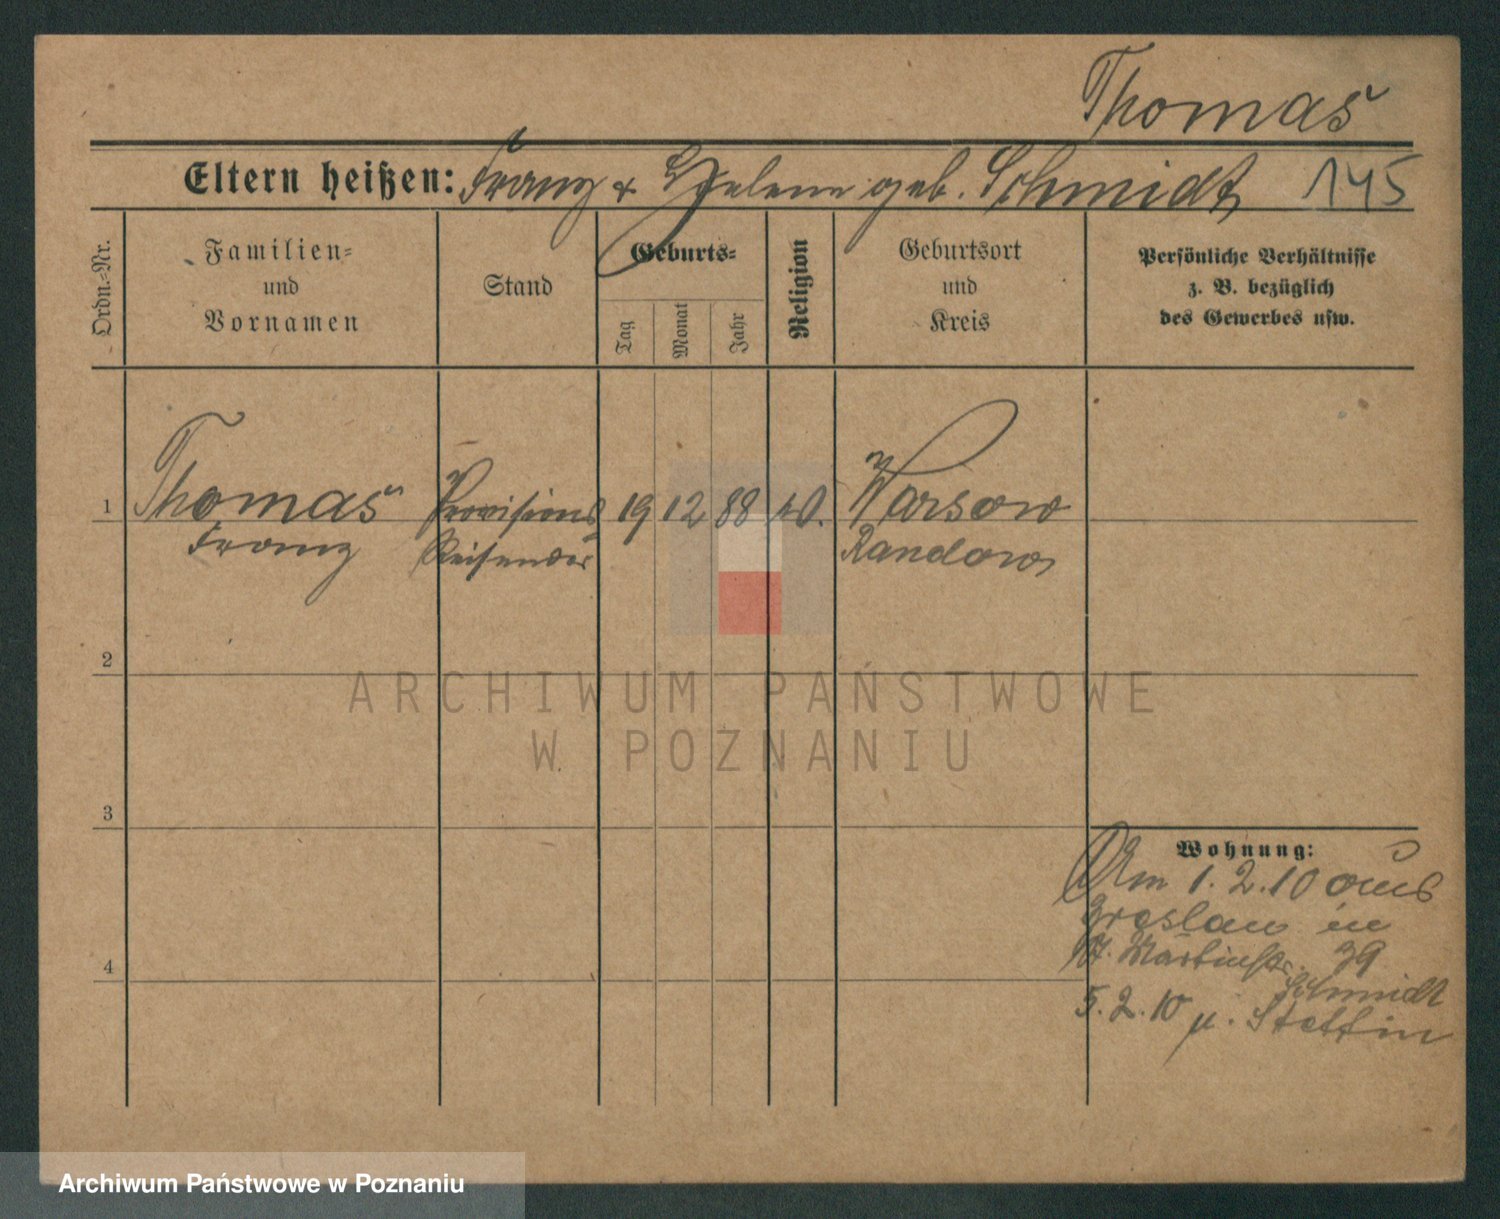 Thomas
Eltern heißen: Franz & Helene geb. Schmidt 145
Ordn.-Nr.
Familien-
und
Vornamen
Stand
Geburts-
Tag
Monat
Jahr
Religion
Geburtsort
und
Kreis
Persönliche Verhältnisse
z. B. bezüglich
des Gewerbes usw.
1 Thomas Provisions 19 12 88 Warsow
Franz Reisender Randow
2
3
4
Wohnung:
Am 1. 2. 10 aus
Breslau in
St. Martinstr. 39
Schmidt
5. 2. 10 n. Stettin
ARCHIWUM PAŃSTWOWE
W POZNANIU
Archiwum Państwowe w Poznaniu